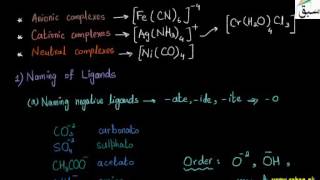 * Anionic complexes → [Fe(CN)₆]⁻⁴
* Cationic complexes → [Ag(NH₃)₄]⁺ → [Cr(H₂O)₄Cl₃
* Neutral complexes → [Ni(CO)₄]
سبق
1) Naming of Ligands
(a) Naming negative ligands → -ate, -ide, -ite ⇒ -o
CO₃⁻² carbonato
SO₄⁻² sulphato
CH₃COO⁻ acetato
Order: O⁻², OH⁻,